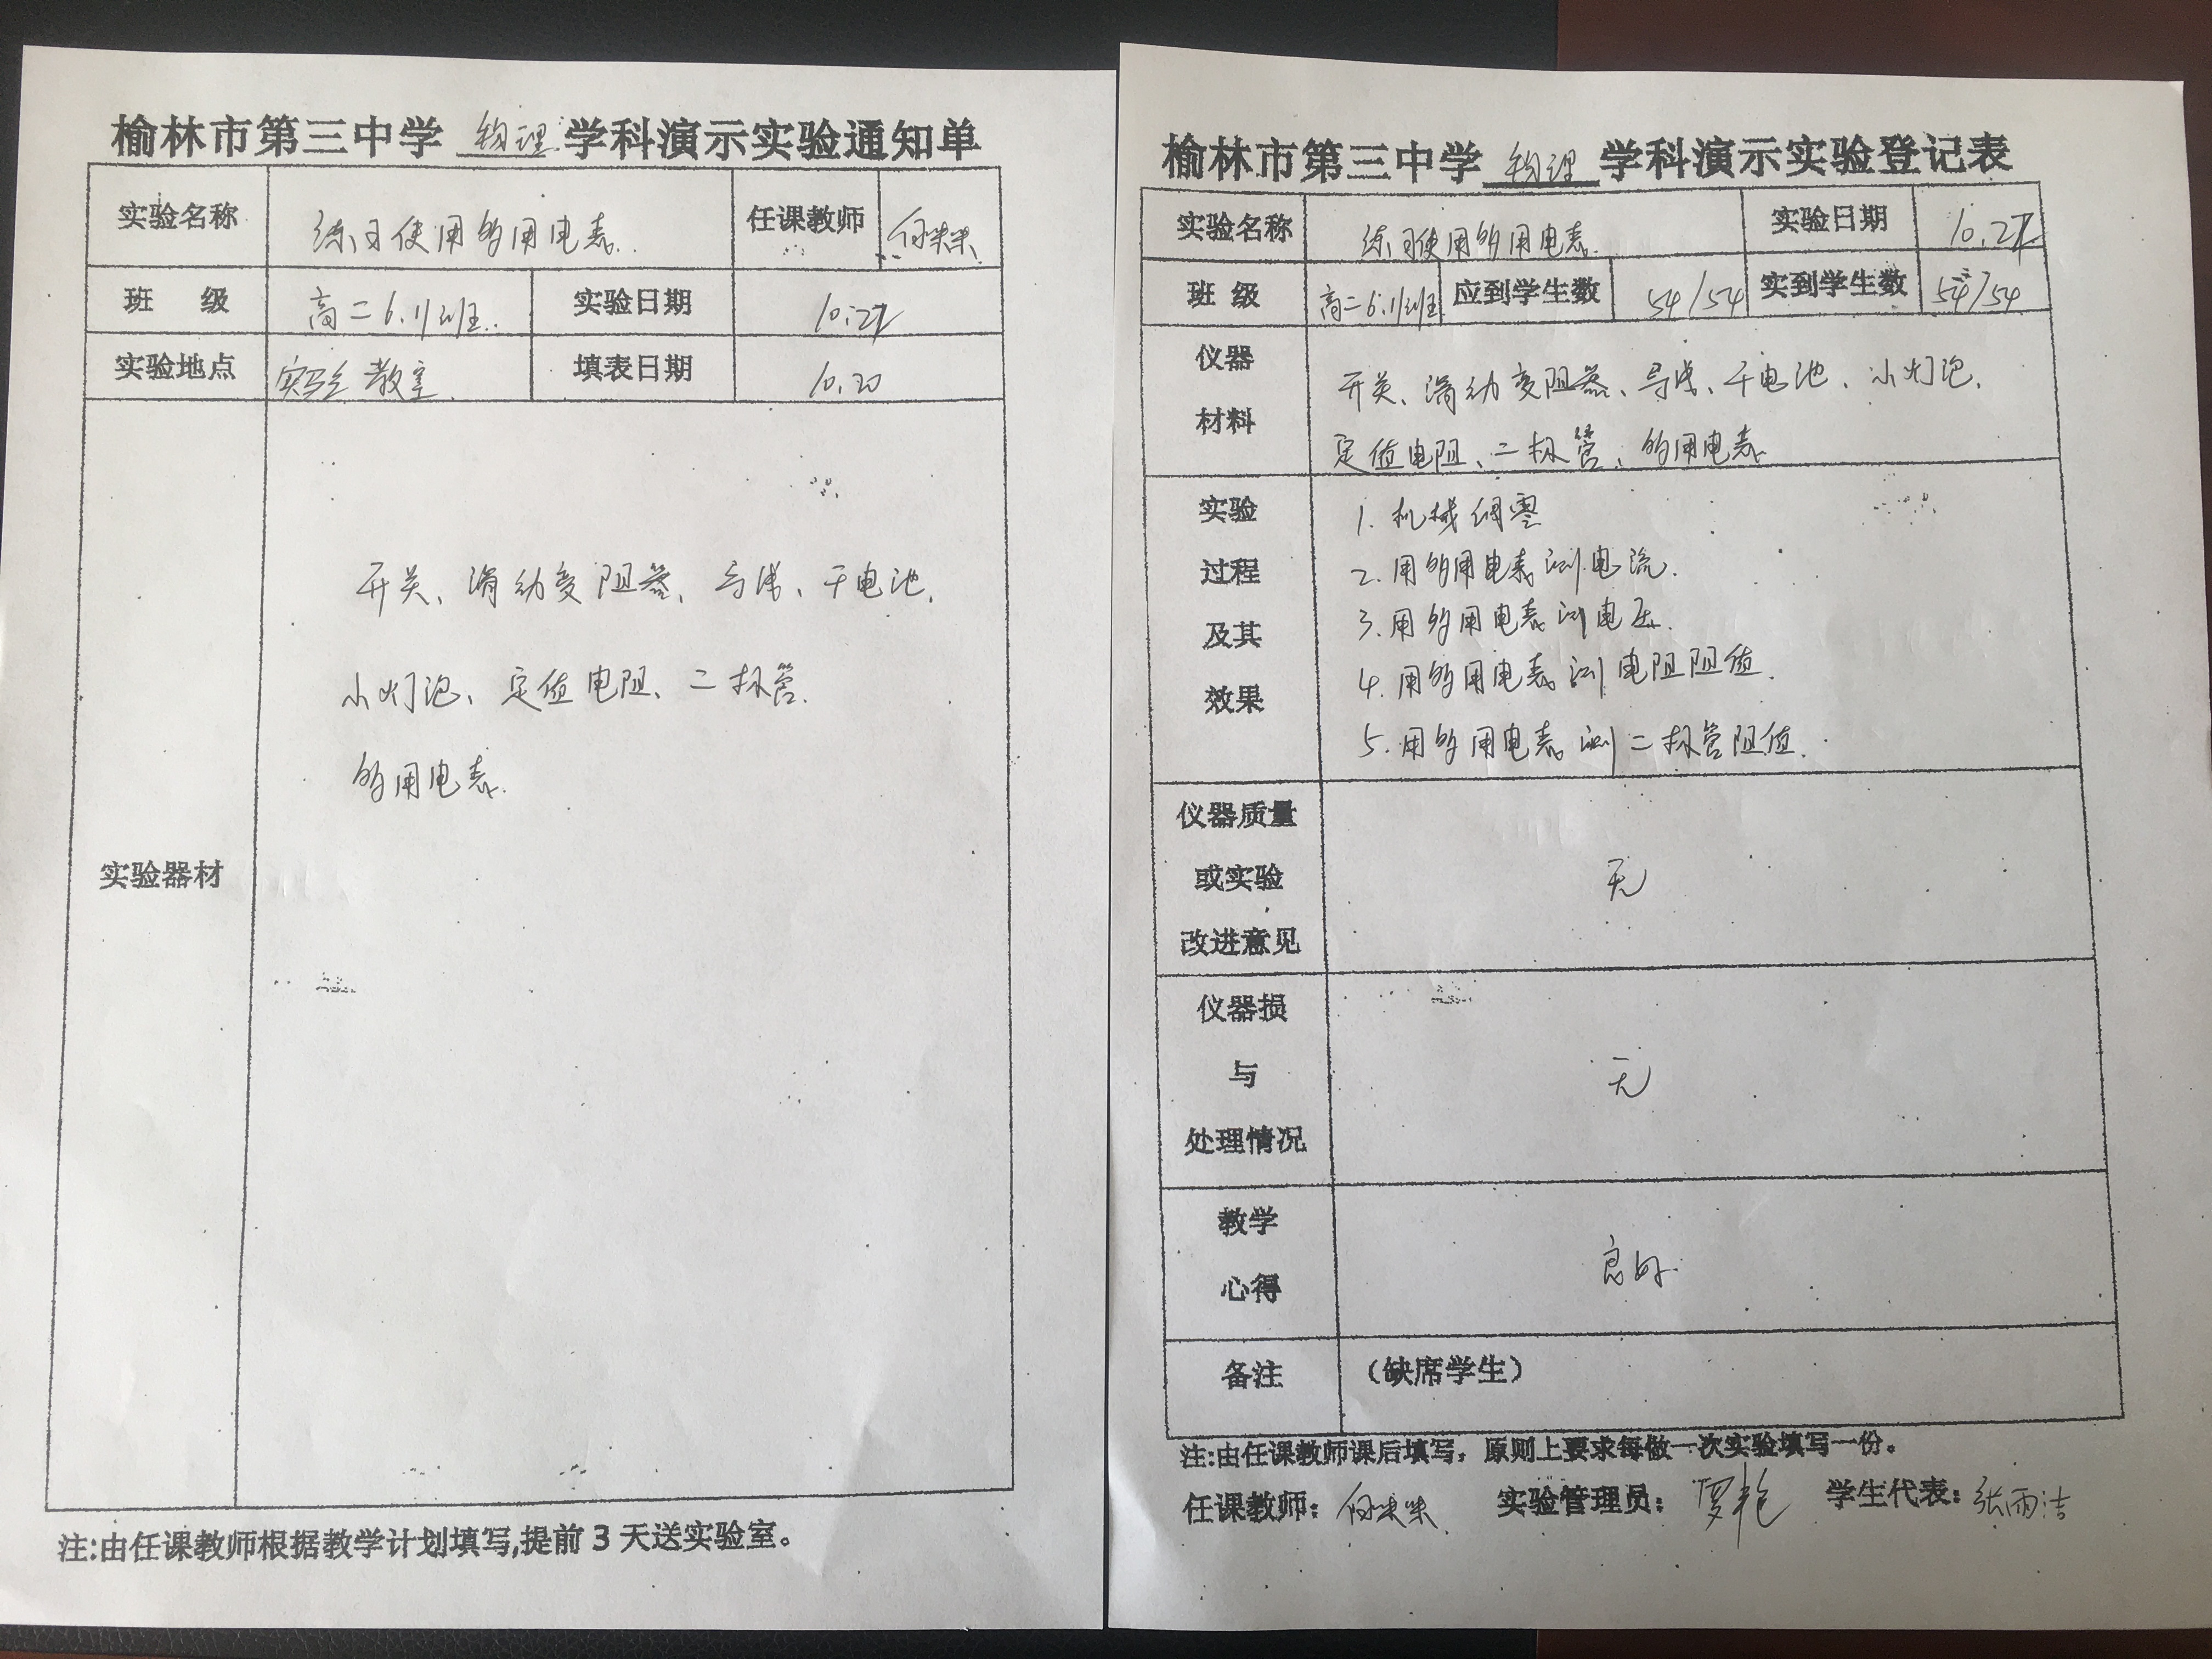 榆林市第三中学 物理 学科演示实验通知单
实验名称 练习使用多用电表. 任课教师
班 级 高二6.11班. 实验日期 10.27
实验地点 实验教室. 填表日期 10.20
实验器材
开关、滑动变阻器、导线、干电池、
小灯泡、定值电阻、二极管.
多用电表.
注:由任课教师根据教学计划填写,提前3天送实验室。
榆林市第三中学 物理 学科演示实验登记表
实验名称 练习使用多用电表. 实验日期 10.27
班 级 高二6.11班 应到学生数 54/54 实到学生数 54/54
仪器
材料
开关、滑动变阻器、导线、干电池、小灯泡、
定值电阻、二极管、多用电表.
实验
过程
及其
效果
1. 机械调零
2. 用多用电表测电流.
3. 用多用电表测电压.
4. 用多用电表测电阻阻值.
5. 用多用电表测二极管阻值.
仪器质量
或实验
改进意见
无
仪器损
与
处理情况
无
教学
心得
良好.
备注 （缺席学生）
注:由任课教师课后填写，原则上要求每做一次实验填写一份。
任课教师： 实验管理员： 学生代表：张雨洁